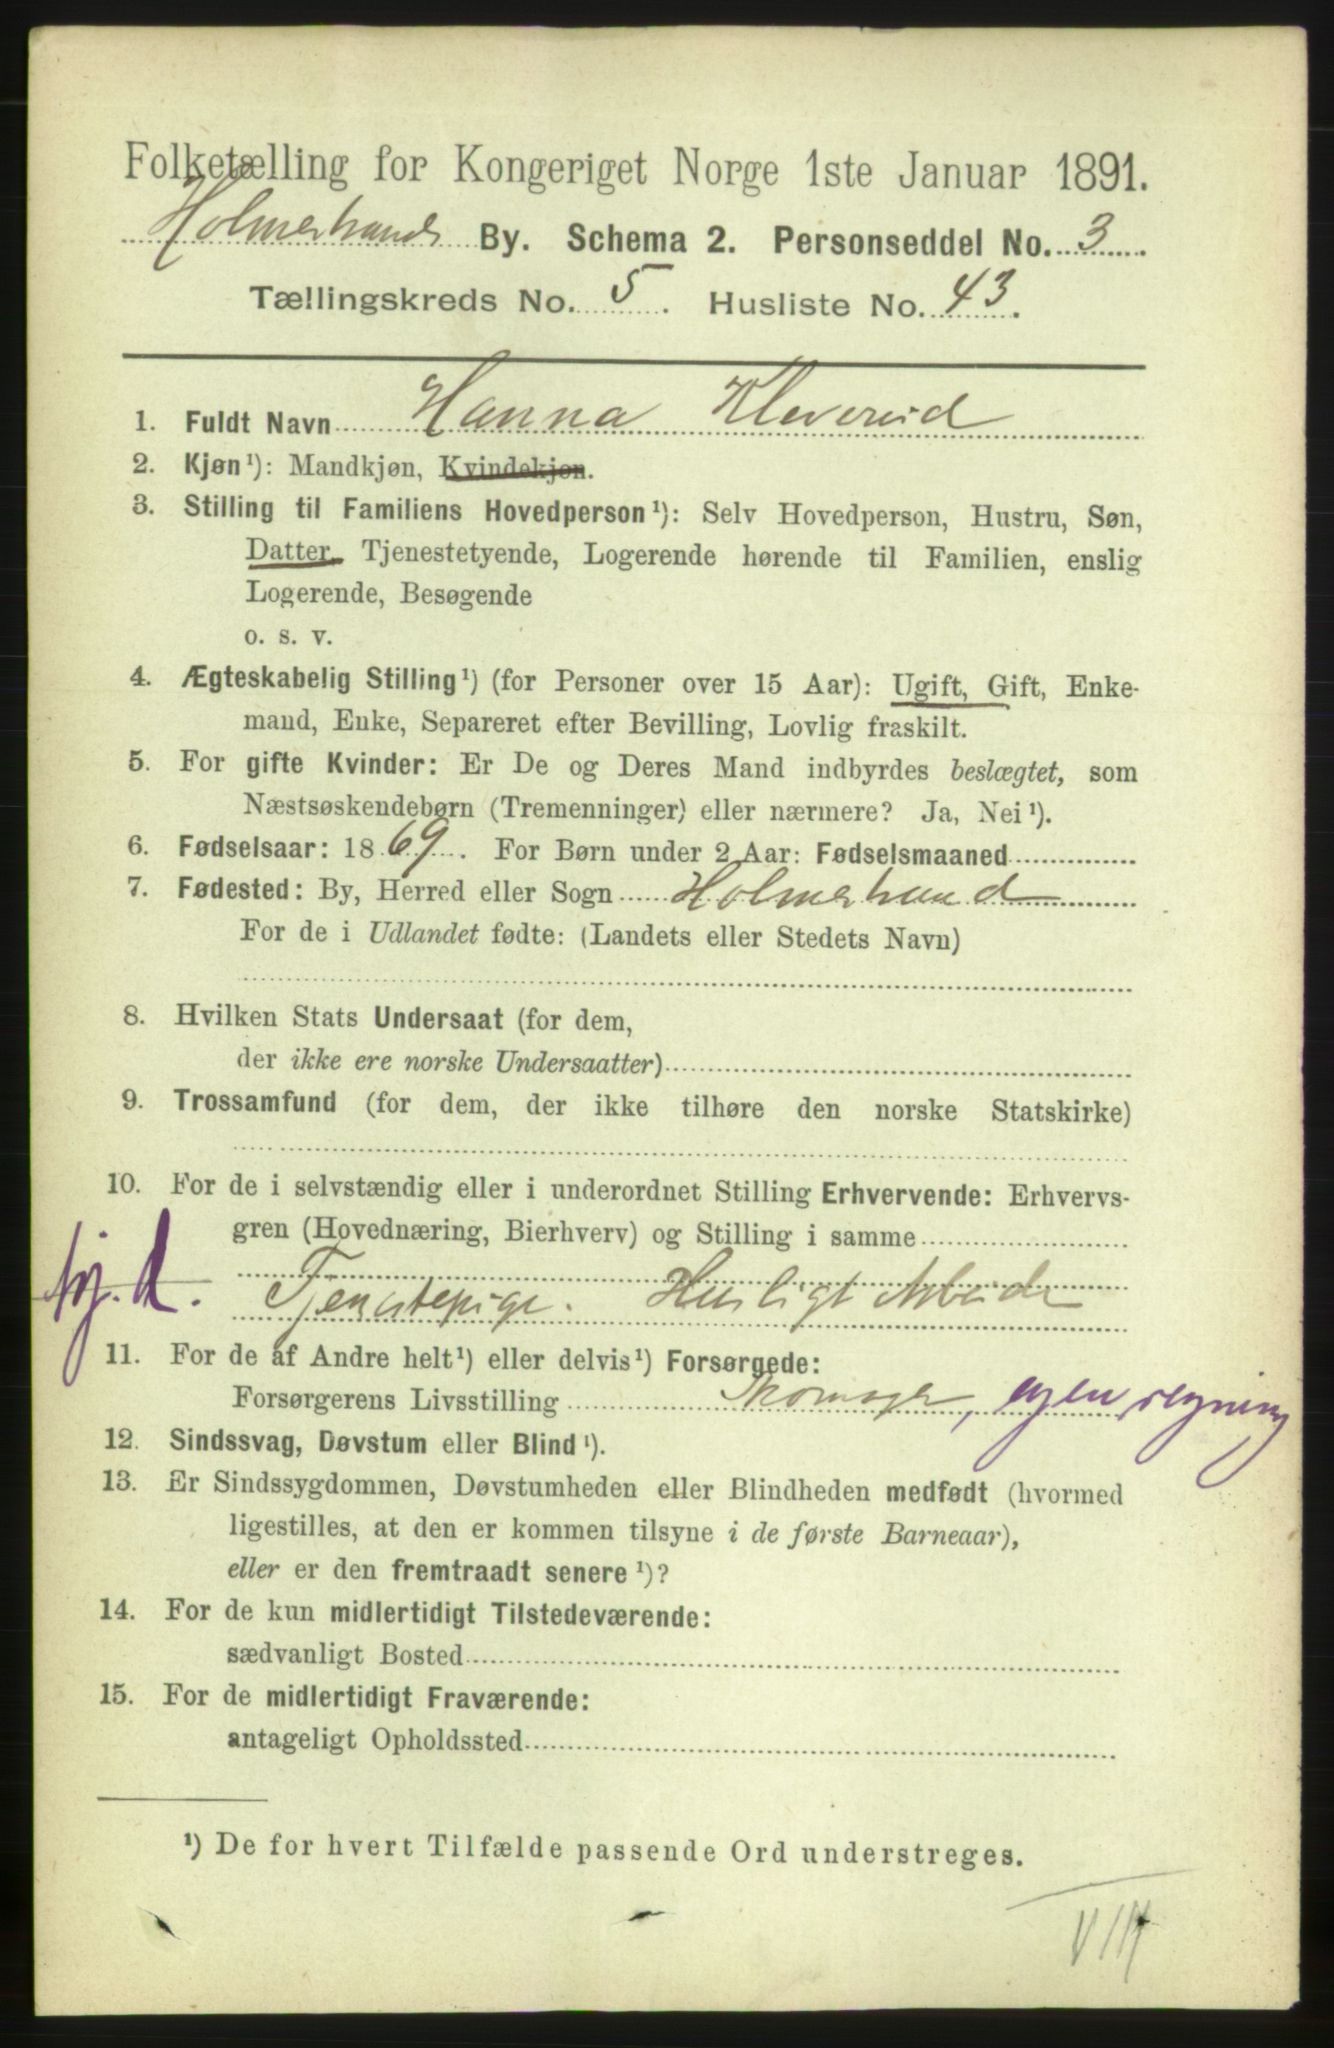 Folketælling for Kongeriget Norge 1ste Januar 1891.
Holmestrands By. Schema 2. Personseddel No. 3.
Tællingskreds No. 5. Husliste No. 43.
1. Fuldt Navn Hanna Klevereid
2. Kjøn ¹): Mandkjøn, Kvindekjøn.
3. Stilling til Familiens Hovedperson ¹): Selv Hovedperson, Hustru, Søn,
Datter, Tjenestetyende, Logerende hørende til Familien, enslig
Logerende, Besøgende
o. s. v.
4. Ægteskabelig Stilling ¹) (for Personer over 15 Aar): Ugift, Gift, Enke-
mand, Enke, Separeret efter Bevilling, Lovlig fraskilt.
5. For gifte Kvinder: Er De og Deres Mand indbyrdes beslægtet, som
Næstsøskendebørn (Tremenninger) eller nærmere? Ja, Nei ¹).
6. Fødselsaar: 1869. For Børn under 2 Aar: Fødselsmaaned
7. Fødested: By, Herred eller Sogn Holmestrand
For de i Udlandet fødte: (Landets eller Stedets Navn)
8. Hvilken Stats Undersaat (for dem,
der ikke ere norske Undersaatter)
9. Trossamfund (for dem, der ikke tilhøre den norske Statskirke)
10. For de i selvstændig eller i underordnet Stilling Erhvervende: Erhvervs-
gren (Hovednæring, Bierhverv) og Stilling i samme
tj. d. Tjenestepige. Husligt Arbeide
11. For de af Andre helt ¹) eller delvis ¹) Forsørgede:
Forsørgerens Livsstilling Skomager, egen regning
12. Sindssvag, Døvstum eller Blind ¹).
13. Er Sindssygdommen, Døvstumheden eller Blindheden medfødt (hvormed
ligestilles, at den er kommen tilsyne i de første Barneaar),
eller er den fremtraadt senere ¹)?
14. For de kun midlertidigt Tilstedeværende:
sædvanligt Bosted
15. For de midlertidigt Fraværende:
antageligt Opholdssted
¹) De for hvert Tilfælde passende Ord understreges.
VIII